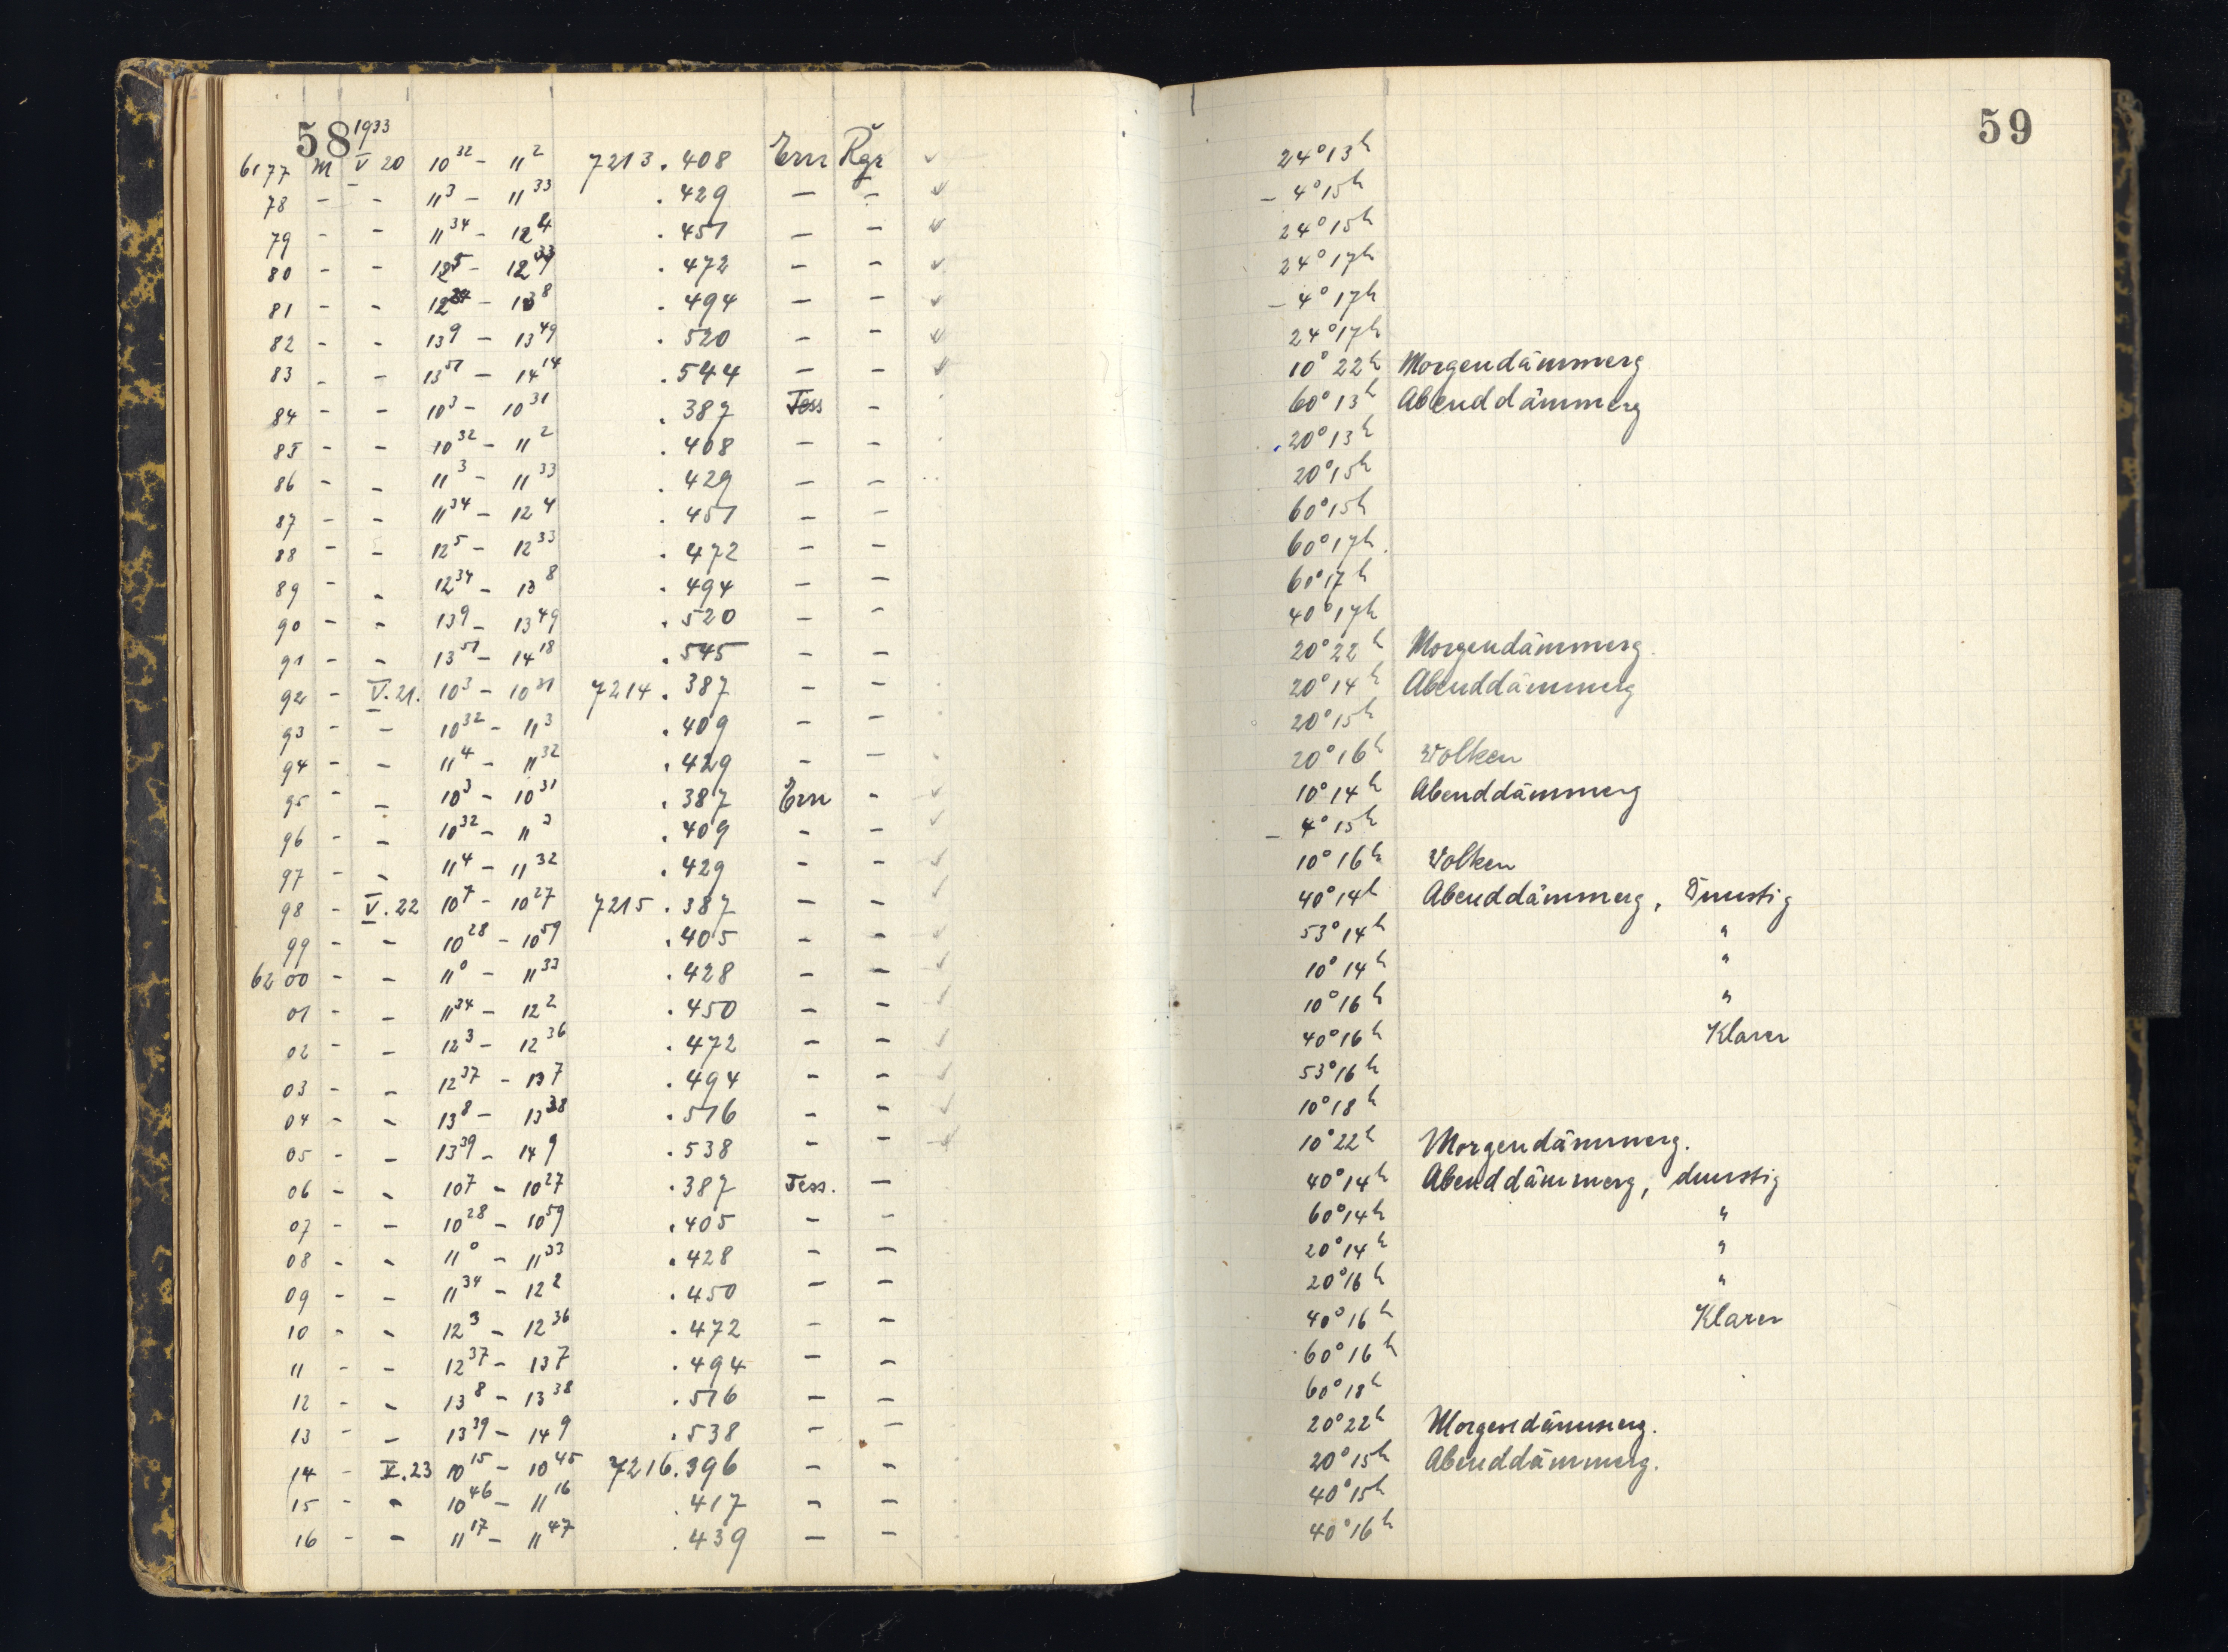 58 1933
59
6177 M V 20 10³² – 11² 7213.408 Ern Rgr 24°13ʰ
78 – – 11³ – 11³³ .429 – – – 4°15ʰ
79 – – 11³⁴ – 12⁴ .451 – – 24°15ʰ
80 – – 12⁵ – 12³³ .472 – – 24°17ʰ
81 – – 12³⁴ – 13⁸ .494 – – – 4°17ʰ
82 – – 13⁹ – 13⁴⁹ .520 – – 24°17ʰ
83 – – 13⁵¹ – 14¹⁴ .544 – – 10°22ʰ Morgendämmerg
84 – – 10³ – 10³¹ .387 Tess – 60°13ʰ Abenddämmerg
85 – – 10³² – 11² .408 – – 20°13ʰ
86 – – 11³ – 11³³ .429 – – 20°15ʰ
87 – – 11³⁴ – 12⁴ .451 – – 60°15ʰ
88 – – 12⁵ – 12³³ .472 – – 60°17ʰ
89 – – 12³⁴ – 13⁸ .494 – – 60°17ʰ
90 – – 13⁹ – 13⁴⁹ .520 – – 40°17ʰ
91 – – 13⁵¹ – 14¹⁸ .545 – – 20°22ʰ Morgendämmerg.
92 – V.21. 10³ – 10³¹ 7214.387 – – 20°14ʰ Abenddämmerg
93 – – 10³² – 11³ .409 – – 20°15ʰ
94 – – 11⁴ – 11³² .429 – – 20°16ʰ Wolken
95 – – 10³ – 10³¹ .387 Ern – 10°14ʰ Abenddämmerg
96 – – 10³² – 11³ .409 – – – 4°15ʰ
97 – – 11⁴ – 11³² .429 – – 10°16ʰ Wolken
98 – V.22 10⁷ – 10²⁷ 7215.387 – – 40°14ʰ Abenddämmerg, Dunstig
99 – – 10²⁸ – 10⁵⁹ .405 – – 53°14ʰ "
6200 – – 11⁰ – 11³³ .428 – – 10°14ʰ "
01 – – 11³⁴ – 12² .450 – – 10°16ʰ "
02 – – 12³ – 12³⁶ .472 – – 40°16ʰ Klarer
03 – – 12³⁷ – 13⁷ .494 – – 53°16ʰ
04 – – 13⁸ – 13³⁸ .516 – – 10°18ʰ
05 – – 13³⁹ – 14⁹ .538 – – 10°22ʰ Morgendämmerg.
06 – – 10⁷ – 10²⁷ .387 Tess. – 40°14ʰ Abenddämmerg, dunstig
07 – – 10²⁸ – 10⁵⁹ .405 – – 60°14ʰ "
08 – – 11⁰ – 11³³ .428 – – 20°14ʰ "
09 – – 11³⁴ – 12² .450 – – 20°16ʰ "
10 – – 12³ – 12³⁶ .472 – – 40°16ʰ Klarer
11 – – 12³⁷ – 13⁷ .494 – – 60°16ʰ
12 – – 13⁸ – 13³⁸ .516 – – 60°18ʰ
13 – – 13³⁹ – 14⁹ .538 – – 20°22ʰ Morgendämmerg.
14 – V.23 10¹⁵ – 10⁴⁵ 7216.396 – – 20°15ʰ Abenddämmerg.
15 – – 10⁴⁶ – 11¹⁶ .417 – – 40°15ʰ
16 – – 11¹⁷ – 11⁴⁷ .439 – – 40°16ʰ